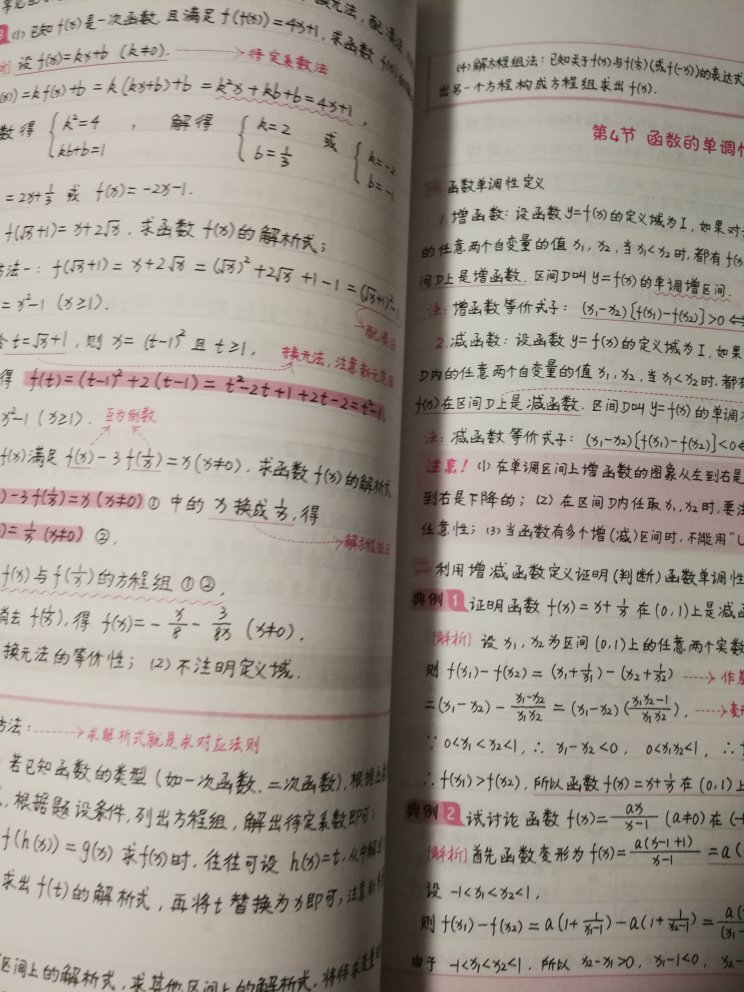 (1) 已知f(x)是一次函数,且满足f(f(x))=4x+1,求函数f(x)
设f(x)=kx+b (k≠0). 待定系数法
=kf(x)+b=k(kx+b)+b=k²x+kb+b=4x+1,
数得 {k²=4 kb+b=1 , 解得 {k=2 b=1/3 或 {k=-2 b=-1
=2x+1/3 或 f(x)=-2x-1.
f(√x+1)=x+2√x,求函数f(x)的解析式;
方法一:f(√x+1)=x+2√x=(√x)²+2√x+1-1=(√x+1)²-1
配凑法
=x²-1 (x≥1).
令t=√x+1,则x=(t-1)²且t≥1,
换元法,注意新元范围
得 f(t)=(t-1)²+2(t-1)=t²-2t+1+2t-2=t²-1
x²-1 (x≥1). 互为倒数
f(x)满足f(x)-3f(1/x)=x(x≠0),求函数f(x)的解析式
)-3f(1/x)=x(x≠0)① 中的x换成1/x,得
)=1/x (x≠0) ②,
解方程组法
f(x)与f(1/x)的方程组①②,
消去f(1/x),得 f(x)=-x/8-3/8x (x≠0).
换元法的等价性;(2)不注明定义域.
方法: 求解析式就是求对应法则
若已知函数的类型(如一次函数、二次函数),根据
,根据题设条件,列出方程组,解出待定系数即可;
f(h(x))=g(x)求f(x)时,往往可设h(x)=t,从中解
求出f(t)的解析式,再将t替换为x即可,注意
区间上的解析式,求其他区间上的解析式,将待求
(4)解方程组法:已知关于f(x)与f(1/x)(或f(-x))的表达式
出另一个方程构成方程组求出f(x).
第4节 函数的单调性
一 函数单调性定义
1.增函数:设函数y=f(x)的定义域为I,如果对
的任意两个自变量的值x₁,x₂,当x₁<x₂时,都有f(x
间D上是增函数.区间D叫y=f(x)的单调增区间.
注:增函数等价式子:(x₁-x₂)[f(x₁)-f(x₂)]>0⇔
2.减函数:设函数y=f(x)的定义域为I,如果
D内的任意两个自变量的值x₁,x₂,当x₁<x₂时,都有
f(x)在区间D上是减函数.区间D叫y=f(x)的单调
注:减函数等价式子:(x₁-x₂)[f(x₁)-f(x₂)]<0⇔
注意!(1)在单调区间上增函数的图象从左到右是
到右是下降的;(2)在区间D内任取x₁,x₂时,要注
任意性;(3)当函数有多个增(减)区间时,不能用“∪
二 利用增减函数定义证明(判断)函数单调性
典例1 证明函数f(x)=x+1/x在(0,1)上是减函
[解析] 设x₁,x₂为区间(0,1)上的任意两个实数
则f(x₁)-f(x₂)=(x₁+1/x₁)-(x₂+1/x₂) 作差
=(x₁-x₂)-(x₁-x₂)/(x₁x₂)=(x₁-x₂)((x₁x₂-1)/(x₁x₂)), 变形
∵0<x₁<x₂<1,∴x₁-x₂<0,0<x₁x₂<1,∴
∴f(x₁)>f(x₂),所以函数f(x)=x+1/x在(0,1)上
典例2 试讨论函数f(x)=ax/(x-1) (a≠0)在(-
[解析]首先函数变形为f(x)=a(x-1+1)/(x-1)=a(
设 -1<x₁<x₂<1,
则f(x₁)-f(x₂)=a(1+1/(x₁-1))-a(1+1/(x₂-1))=
由于 -1<x₁<x₂<1,所以x₂-x₁>0,x₁-1<0,x₂-